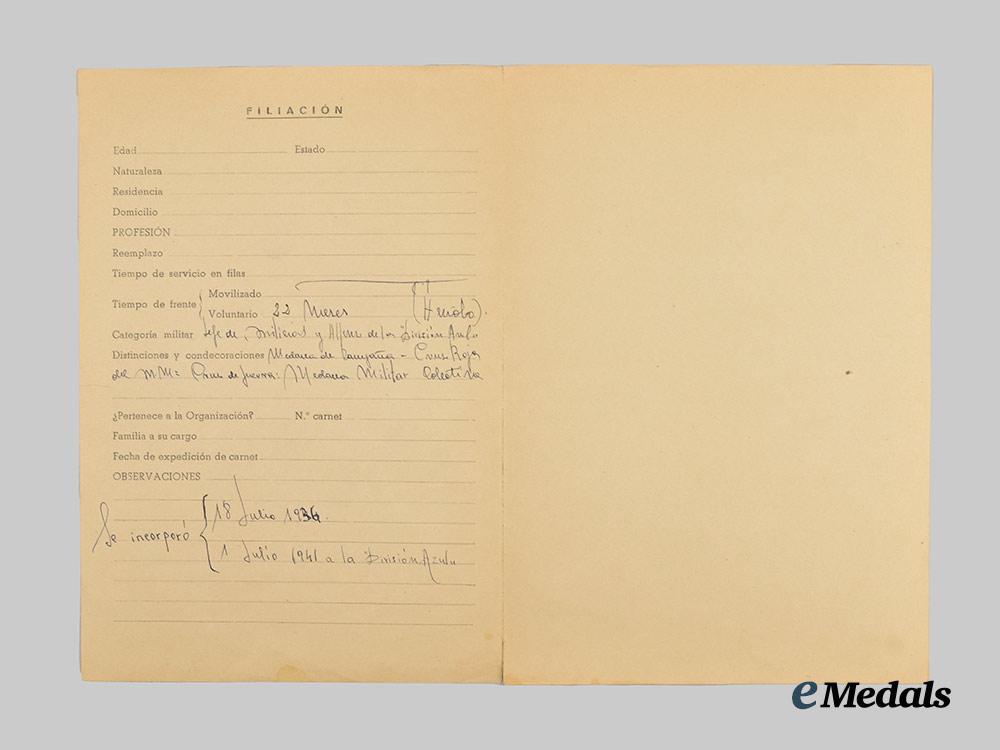 FILIACIÓN
Edad Estado
Naturaleza
Residencia
Domicilio
PROFESIÓN
Reemplazo
Tiempo de servicio en filas
Tiempo de frente { Movilizado
Voluntario 22 Meses
Categoría militar Jefe de Milicias y de la División Azul
Distinciones y condecoraciones Medalla de Campaña - Cruz Roja
del M.M: Cruz de Guerra: Medalla Militar Colectiva
¿Pertenece a la Organización? N.° carnet
Familia a su cargo
Fecha de expedición de carnet
OBSERVACIONES
Se incorporó { 18 Julio 1936.
1 Julio 1941 a la División Azul
eMedals